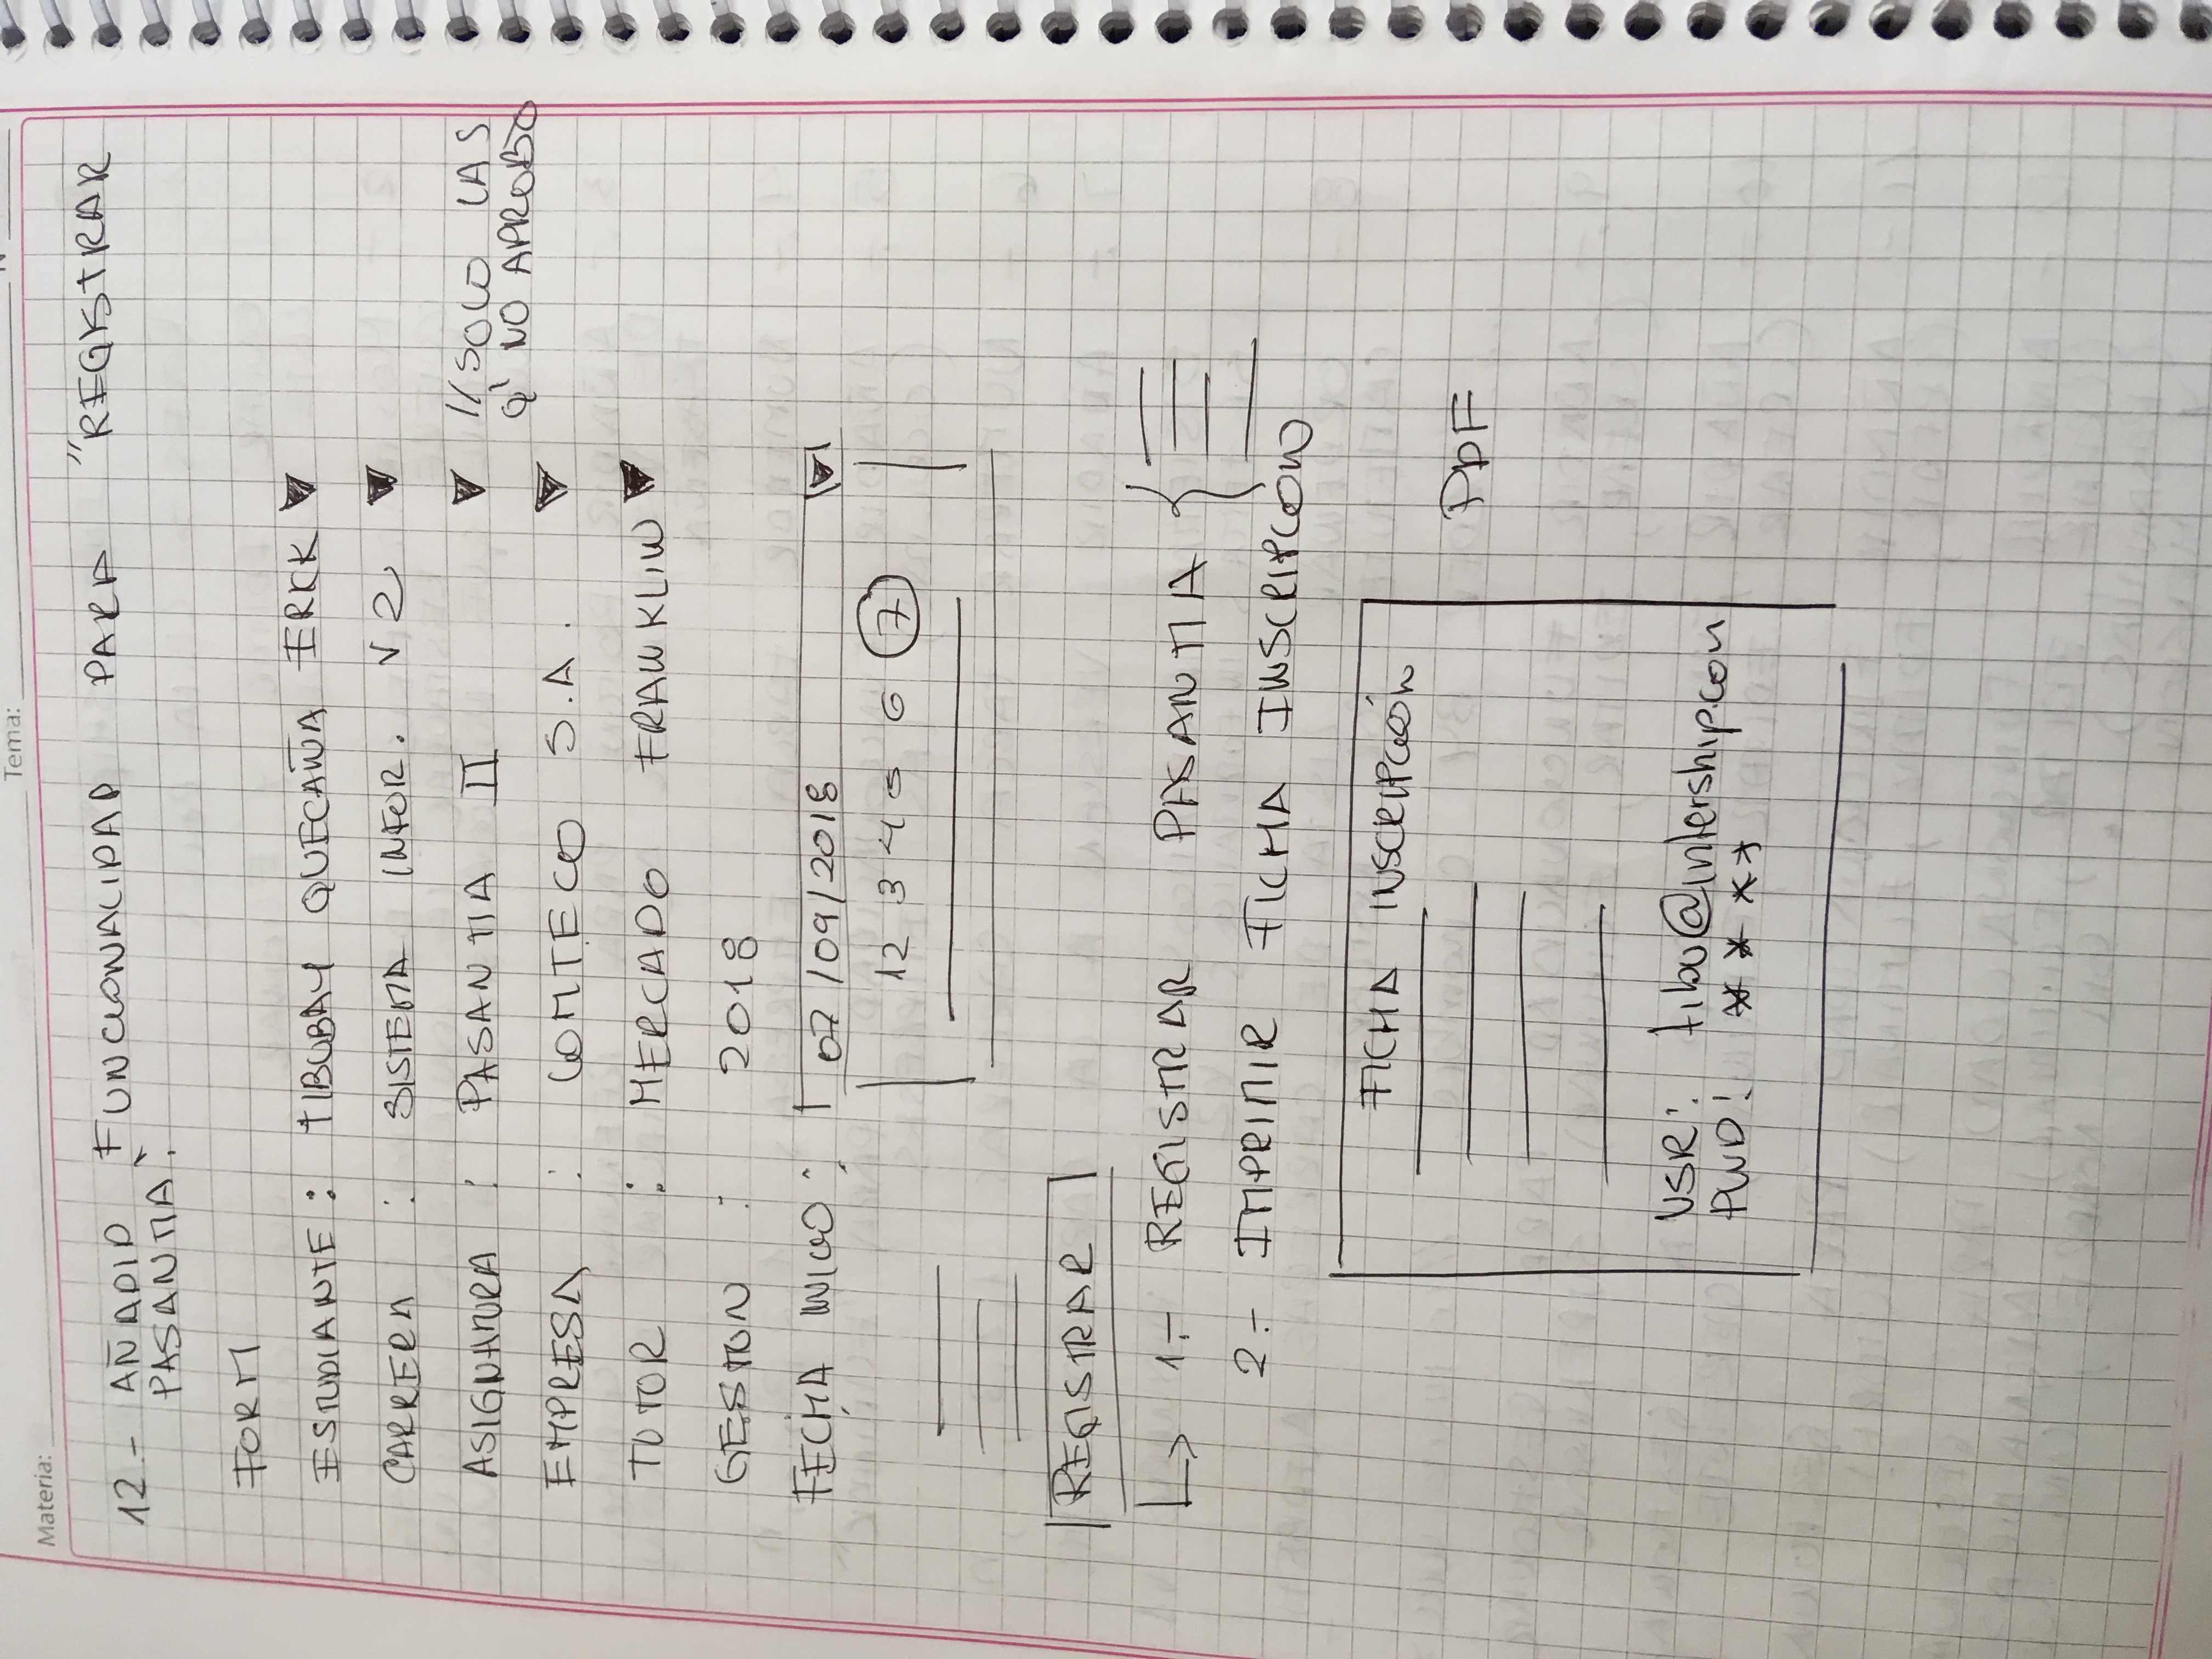 Materia: Tema: N
12.- AÑADID FUNCIONALIDAD PARA "REGISTRAR
PASANTIA":
FORM
ESTUDIANTE : TIBUBAY QUECAÑA ERICK ▼
CARRERA : SISTEMA INFOR. V2 ▼
ASIGNATURA : PASANTIA II ▼ // SOLO LAS
Q' NO APROBO
EMPRESA : COMTECO S.A. ▼
TUTOR : MERCADO FRANKLIN ▼
GESTION : 2018
FECHA INICIO : 07/09/2018 ▼
1 2 3 4 5 6 7
REGISTRAR
↳ 1.- REGISTRAR PASANTIA {
2.- IMPRIMIR FICHA INSCRIPCIÓN
FICHA INSCRIPCIÓN
PDF
USR: tibu@intership.com
PWD: * * * *